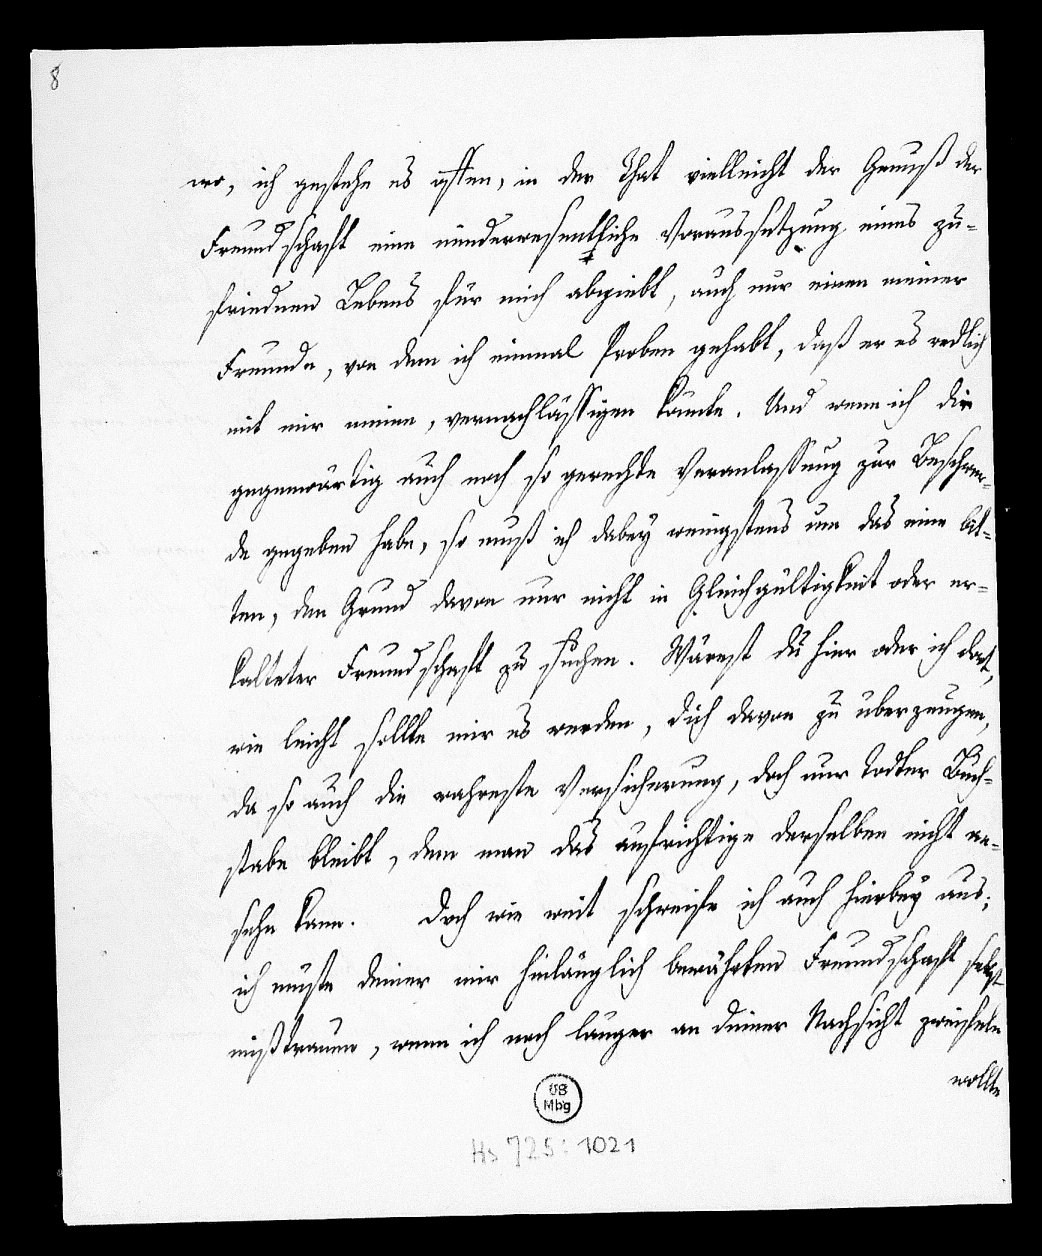 8
wo, ich gestehe es offen, in der That vielleicht der Genuß der
Freundschaft eine minderwesentliche Voraussetzung eines zu-
friednen Lebens für mich abgiebt, auch nur einen meiner
Freunde, von dem ich einmal Proben gehabt, daß er es redlich
mit mir meine, vernachlässigen könnte. Und wenn ich dir
gegenwärtig auch noch so gerechte Veranlassung zur Beschwer-
de gegeben habe, so muß ich dabey wenigstens um das eine bit-
ten, den Grund davon nur nicht in Gleichgültigkeit oder er-
kalteter Freundschaft zu suchen. Wärest du hier oder ich dort,
wie leicht sollte mir es werden, dich davon zu überzeugen,
da so auch die wahreste Versicherung, doch nur todter Buch-
stabe bleibt, dem man das aufrichtige derselben nicht an-
sehn kann. Doch wie weit schweife ich auch hierbey aus;
ich müste deiner mir hinlänglich bewährten Freundschaft selbst
mißtrauen, wenn ich noch länger an deiner Nachsicht zweifeln
wollte
UB
Mbg
Hs 725: 1021